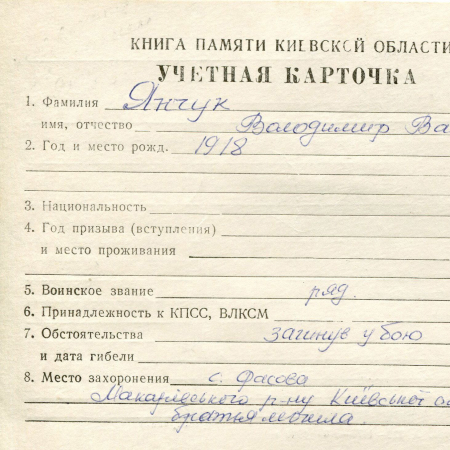 КНИГА ПАМЯТИ КИЕВСКОЙ ОБЛАСТИ
УЧЕТНАЯ КАРТОЧКА
1. Фамилия Янчук
имя, отчество Володимир Ва
2. Год и место рожд. 1918
3. Национальность
4. Год призыва (вступления)
и место проживания
5. Воинское звание ряд.
6. Принадлежность к КПСС, ВЛКСМ
7. Обстоятельства загинув у бою
и дата гибели
8. Место захоронения с. Фасова
Макарівського р-ну Київської о
братья могила.